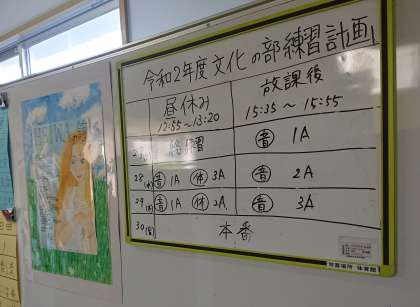 令和2年度文化の部練習計画
昼休み 放課後
12:55～13:20 15:35～15:55
音 1A
28(水) 音 1A 体 3A 音 2A
29(木) 音 1A 体 2A 音 3A
30(金) 本番
常置場所 体育館